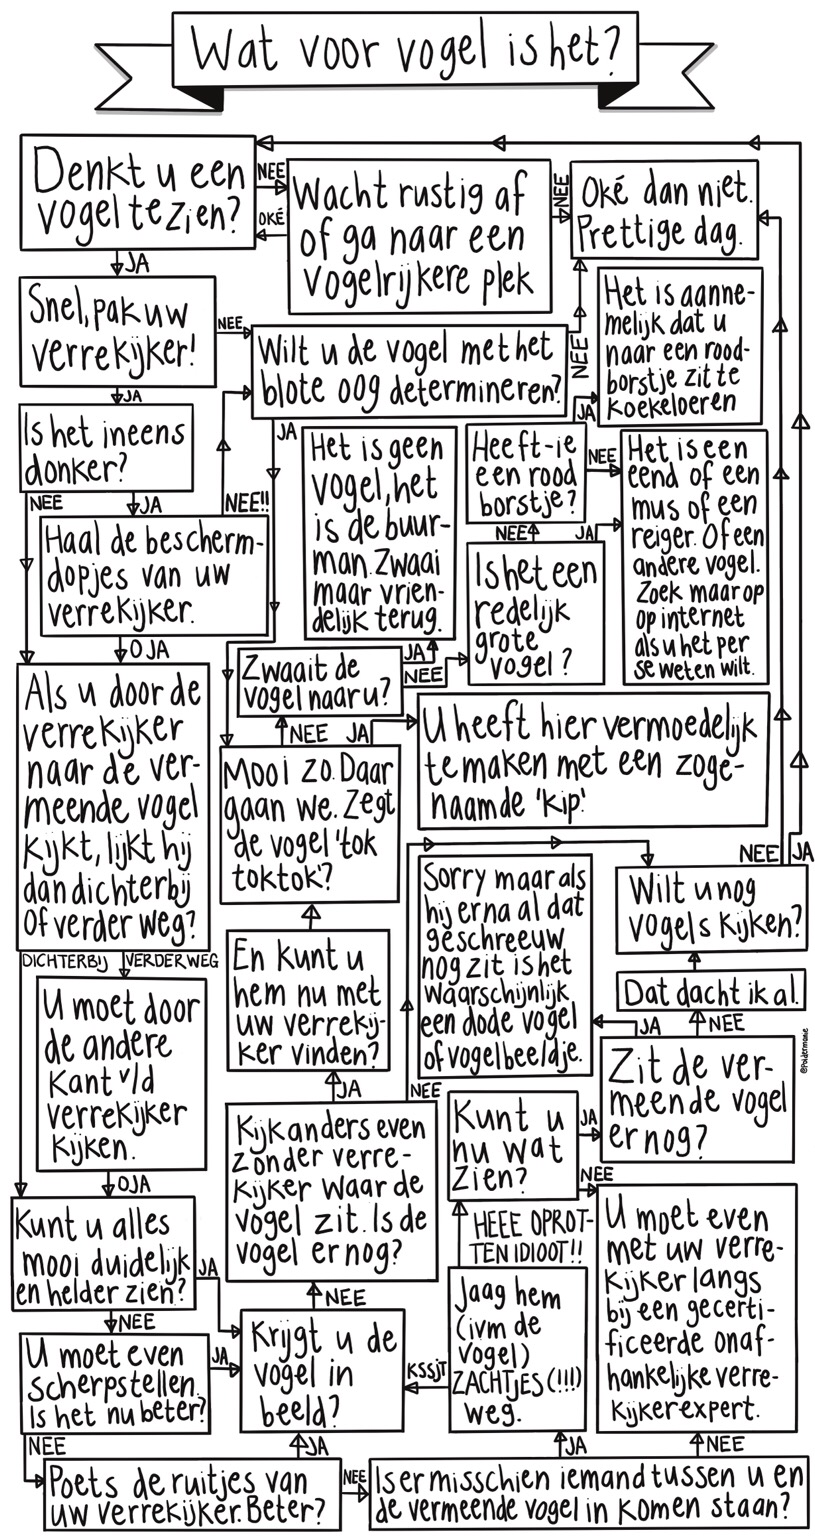 Wat voor vogel is het?
Denkt u een
vogel te zien?
NEE
OKÉ
Wacht rustig af
of ga naar een
vogelrijkere plek
NEE
Oké dan niet.
Prettige dag.
JA
Snel, pak uw
verrekijker!
NEE
Wilt u de vogel met het
blote oog determineren?
NEE
JA
Het is aanne-
melijk dat u
naar een rood-
borstje zit te
koekeloeren
JA
Is het ineens
donker?
NEE
JA
NEE!!
Haal de bescherm-
dopjes van uw
verrekijker.
O JA
JA
Het is geen
vogel, het
is de buur-
man. Zwaai
maar vrien-
delijk terug.
Heeft-ie
een rood
borstje?
NEE
Het is een
eend of een
mus of een
reiger. Of een
andere vogel.
Zoek maar op
op internet
als u het per
se weten wilt.
NEE
JA
Is het een
redelijk
grote
vogel?
Zwaait de
vogel naar u?
JA
NEE
Als u door de
verrekijker
naar de ver-
meende vogel
kijkt, lijkt hij
dan dichterbij
of verder weg?
NEE
JA
U heeft hier vermoedelijk
te maken met een zoge-
naamde 'kip'.
Mooi zo. Daar
gaan we. Zegt
de vogel 'tok
toktok'?
NEE
JA
Wilt u nog
vogels kijken?
Sorry maar als
hij erna al dat
geschreeuw
nog zit is het
waarschijnlijk
een dode vogel
of vogelbeeldje.
DICHTERBIJ
VERDER WEG
En kunt u
hem nu met
uw verrekij-
ker vinden?
Dat dacht ik al.
U moet door
de andere
kant v/d
verrekijker
kijken.
JA
NEE
Zit de ver-
meende vogel
er nog?
@Poldermanie
JA
NEE
Kijk anders even
zonder verre-
kijker waar de
vogel zit. Is de
vogel er nog?
Kunt u
nu wat
zien?
JA
NEE
OJA
Kunt u alles
mooi duidelijk
en helder zien?
JA
NEE
HEEE OPROT-
TEN IDIOOT!!
U moet even
met uw verre-
kijker langs
bij een gecerti-
ficeerde onaf-
hankelijke verre-
kijkerexpert.
NEE
Krijgt u de
vogel in
beeld?
KSSJT
Jaag hem
(ivm de
vogel)
ZACHTJES (!!!)
weg.
U moet even
scherpstellen.
Is het nu beter?
JA
NEE
JA
JA
NEE
Poets de ruitjes van
uw verrekijker. Beter?
NEE
Is er misschien iemand tussen u en
de vermeende vogel in komen staan?